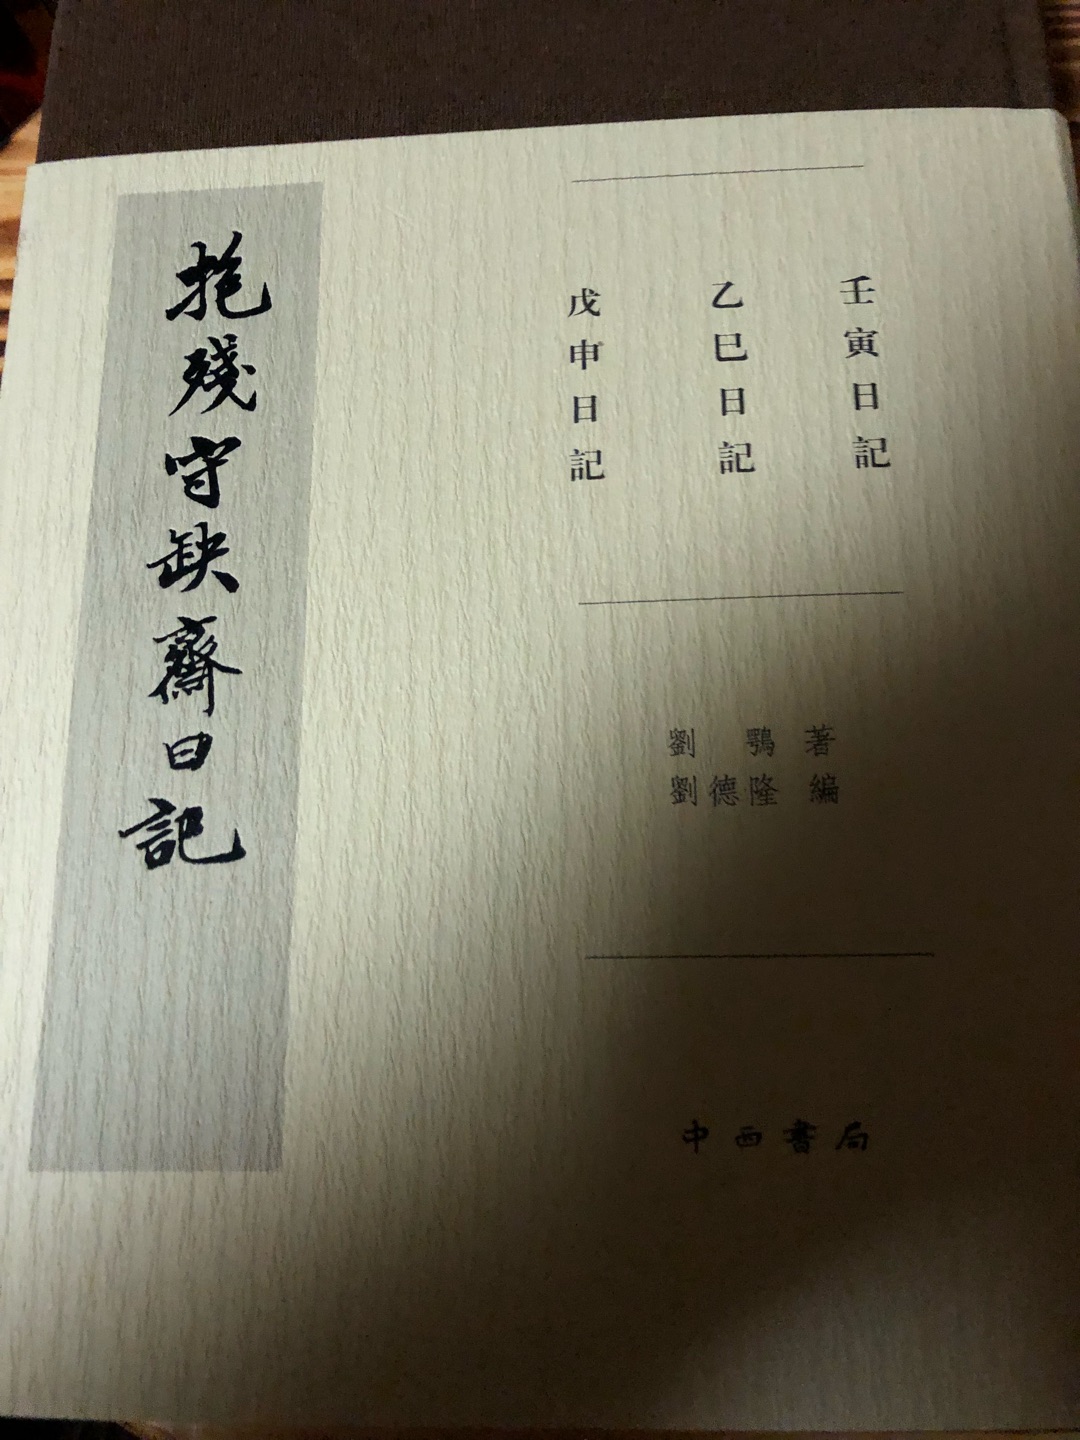 壬寅日記
乙巳日記
戊申日記
劉鶚 著
劉德隆 編
中西書局
抱殘守缺齋日記